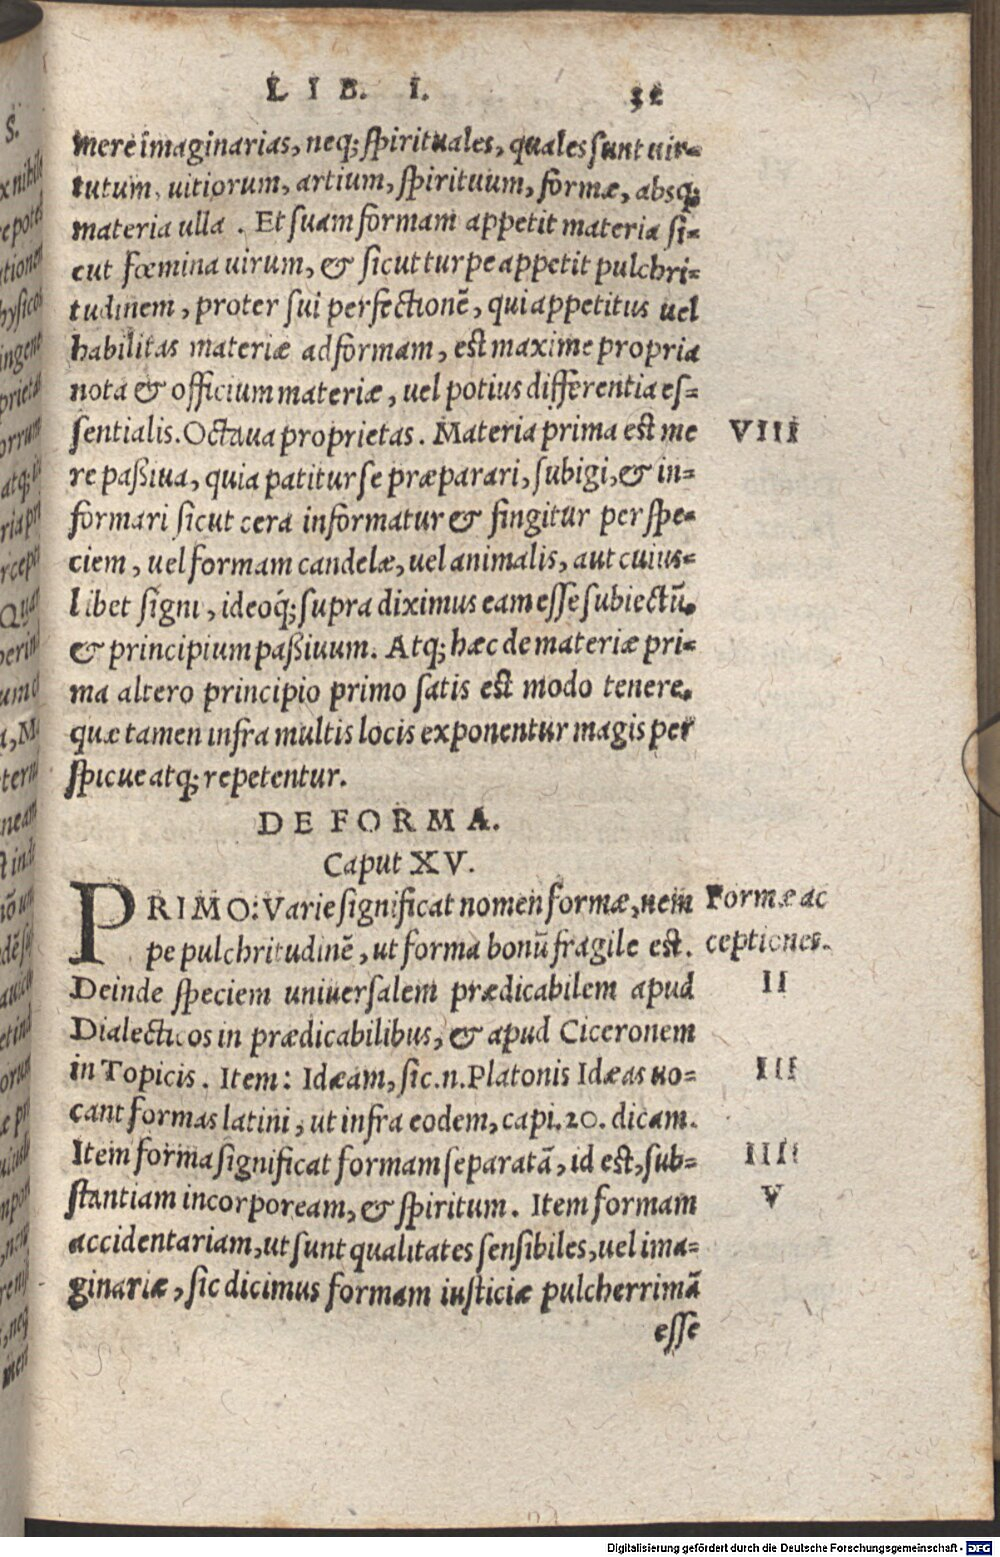 LIB. I. 3c
mere imaginarias, neq; spirituales, quales sunt uir=
tutum, uitiorum, artium, spirituum, formæ, absq;
materia ulla . Et suam formam appetit materia si=
cut fœmina uirum, & sicut turpe appetit pulchri=
tudinem, proter sui perfectionē, qui appetitus uel
habilitas materiæ ad formam, est maxime propria
nota & officium materiæ, uel potius differentia es=
sentialis. Octaua proprietas. Materia prima est me
VIII
re paßiua, quia patitur se præparari, subigi, & in=
formari sicut cera informatur & fingitur per spe=
ciem, uel formam candelæ, uel animalis, aut cuius=
libet signi, ideoq́; supra diximus eam esse subiectū,
& principium paßiuum. Atq; hæc de materiæ pri=
ma altero principio primo satis est modo tenere,
quæ tamen infra multis locis exponentur magis per
spicue atq; repetentur.
DE FORMA.
Caput XV.
PRIMO: Varie significat nomen formæ, nem
Formæ ac
pe pulchritudinē, ut forma bonū fragile est.
ceptiones.
Deinde speciem uniuersalem prædicabilem apud
II
Dialecticos in prædicabilibus, & apud Ciceronem
in Topicis. Item: Idæam, sic .n. Platonis Idæas uo=
III
cant formas latini, ut infra eodem, capi. 20. dicam.
Item forma significat formam separatā, id est, sub=
IIII
stantiam incorpoream, & spiritum. Item formam
V
accidentariam, ut sunt qualitates sensibiles, uel ima=
ginariæ, sic dicimus formam iusticiæ pulcherrimā
esse
Digitalisierung gefördert durch die Deutsche Forschungsgemeinschaft - DFG